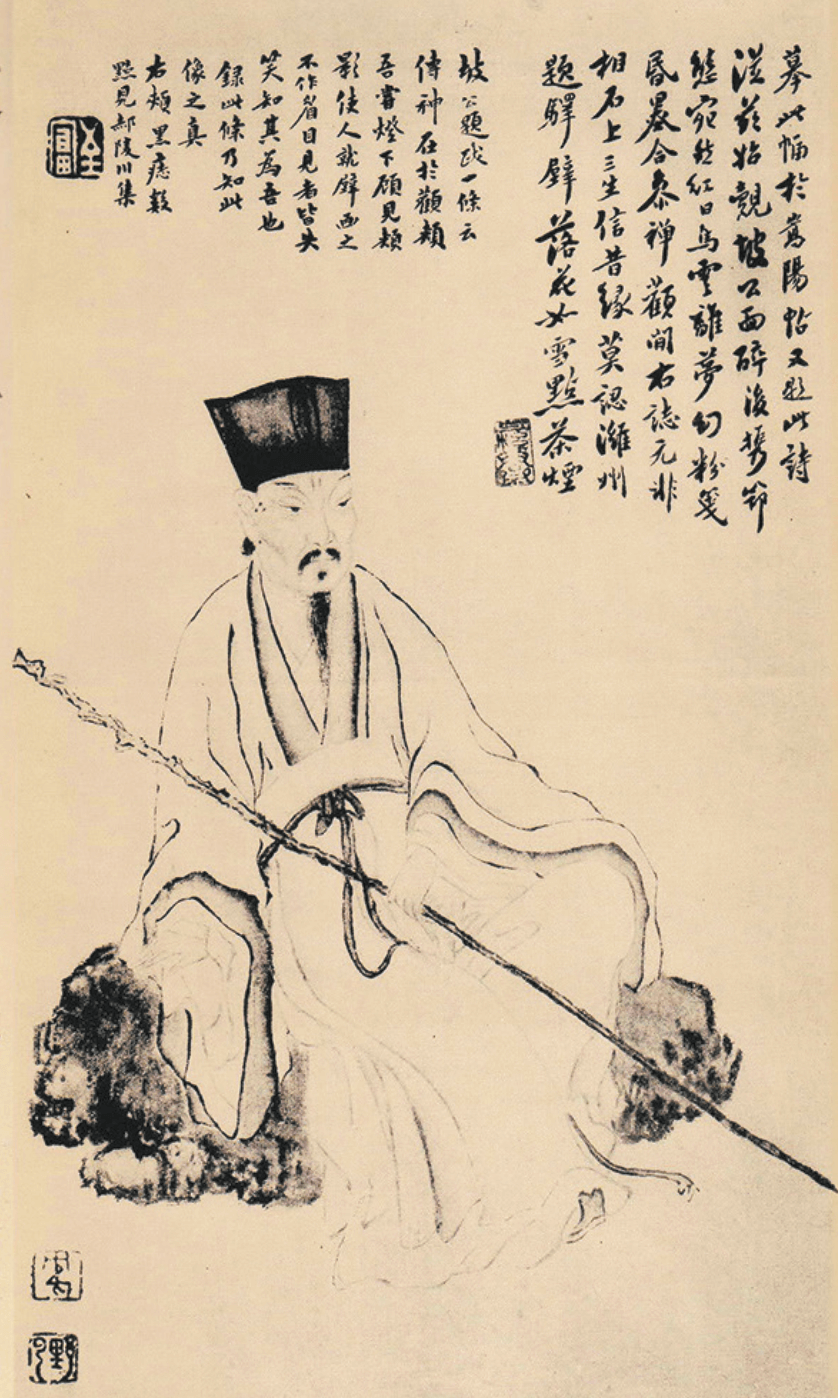 摹此幅於嵩陽帖又題此詩
從茲始覿坡公面醉後攜筇
態宛然紅日烏雲離夢幻粉箋
昏墨合參禪顴間右誌元非
相石上三生信昔緣莫認濰州
題驛壁落花如雪點茶煙
坡公題跋一條云
傳神在於顴頰
吾嘗燈下顧見頰
影使人就壁畫之
不作眉目見者皆失
笑知其為吾也
錄此條乃知此
像之真
右頰黑痣數
點見郝陵川集